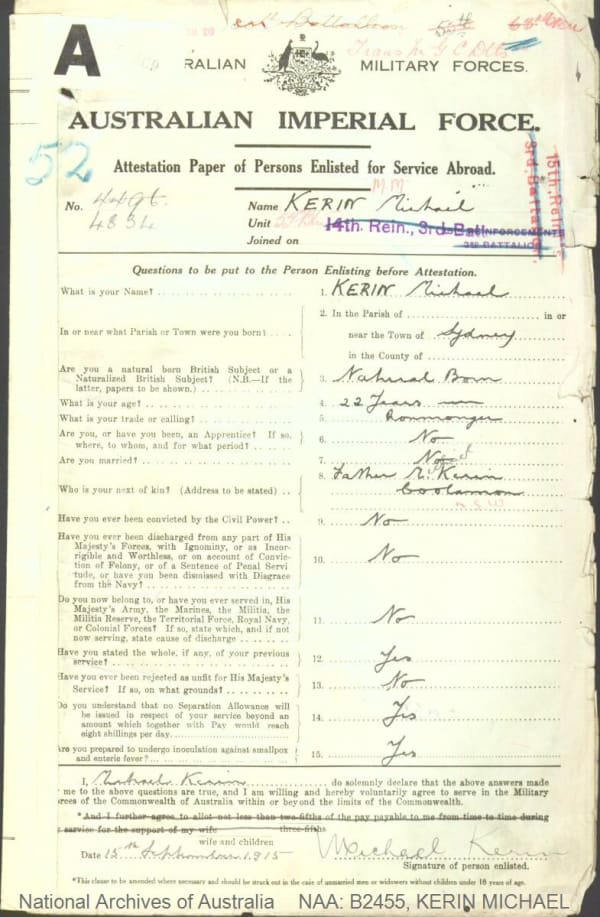 Battalion
Trans M G C Dtls
A
RALIAN MILITARY FORCES.
AUSTRALIAN IMPERIAL FORCE.
52
Attestation Paper of Persons Enlisted for Service Abroad.
15th Rein.
3rd Battalion.
M M
No. 4491.
4834
Name KERIN Michael
Unit 14th. Rein., 3rd Battn
REINFORCEMENTS
3RD BATTALION
Joined on
Questions to be put to the Person Enlisting before Attestation.
What is your Name? 1. KERIN Michael
In or near what Parish or Town were you born? 2. In the Parish of in or
near the Town of Sydney
in the County of
Are you a natural born British Subject or a
Naturalized British Subject? (N.B.—If the
latter, papers to be shown.) 3. Natural Born
What is your age? 4. 22 Years
What is your trade or calling? 5. Ironmonger
Are you, or have you been, an Apprentice? If so,
where, to whom, and for what period? 6. No
Are you married? 7. Not
Who is your next of kin? (Address to be stated) 8. Father M. Kerin
Coolamon
N.S.W.
Have you ever been convicted by the Civil Power? 9. No
Have you ever been discharged from any part of His
Majesty's Forces, with Ignominy, or as Incor-
rigible and Worthless, or on account of Convic-
tion of Felony, or of a Sentence of Penal Servi
tude, or have you been dismissed with Disgrace
from the Navy? 10. No
Do you now belong to, or have you ever served in, His
Majesty's Army, the Marines, the Militia, the
Militia Reserve, the Territorial Force, Royal Navy,
or Colonial Forces? If so, state which, and if not
now serving, state cause of discharge 11. No
Have you stated the whole, if any, of your previous
service? 12. Yes
Have you ever been rejected as unfit for His Majesty's
Service? If so, on what grounds? 13. No
Do you understand that no Separation Allowance will
be issued in respect of your service beyond an
amount which together with Pay would reach
eight shillings per day. 14. Yes
Are you prepared to undergo inoculation against smallpox
and enteric fever? 15. Yes
I, Michael Kerin do solemnly declare that the above answers made
me to the above questions are true, and I am willing and hereby voluntarily agree to serve in the Military
rces of the Commonwealth of Australia within or beyond the limits of the Commonwealth.
*And I further agree to allot not less than two-fifths of the pay payable to me from time to time during
service for the support of my wife three-fifths
wife and children
Date 15th September 1915 Michael Kerin
Signature of person enlisted.
*This clause to be amended where necessary and should be struck out in the case of unmarried men or widowers without children under 18 years of age.
National Archives of Australia NAA: B2455, KERIN MICHAEL